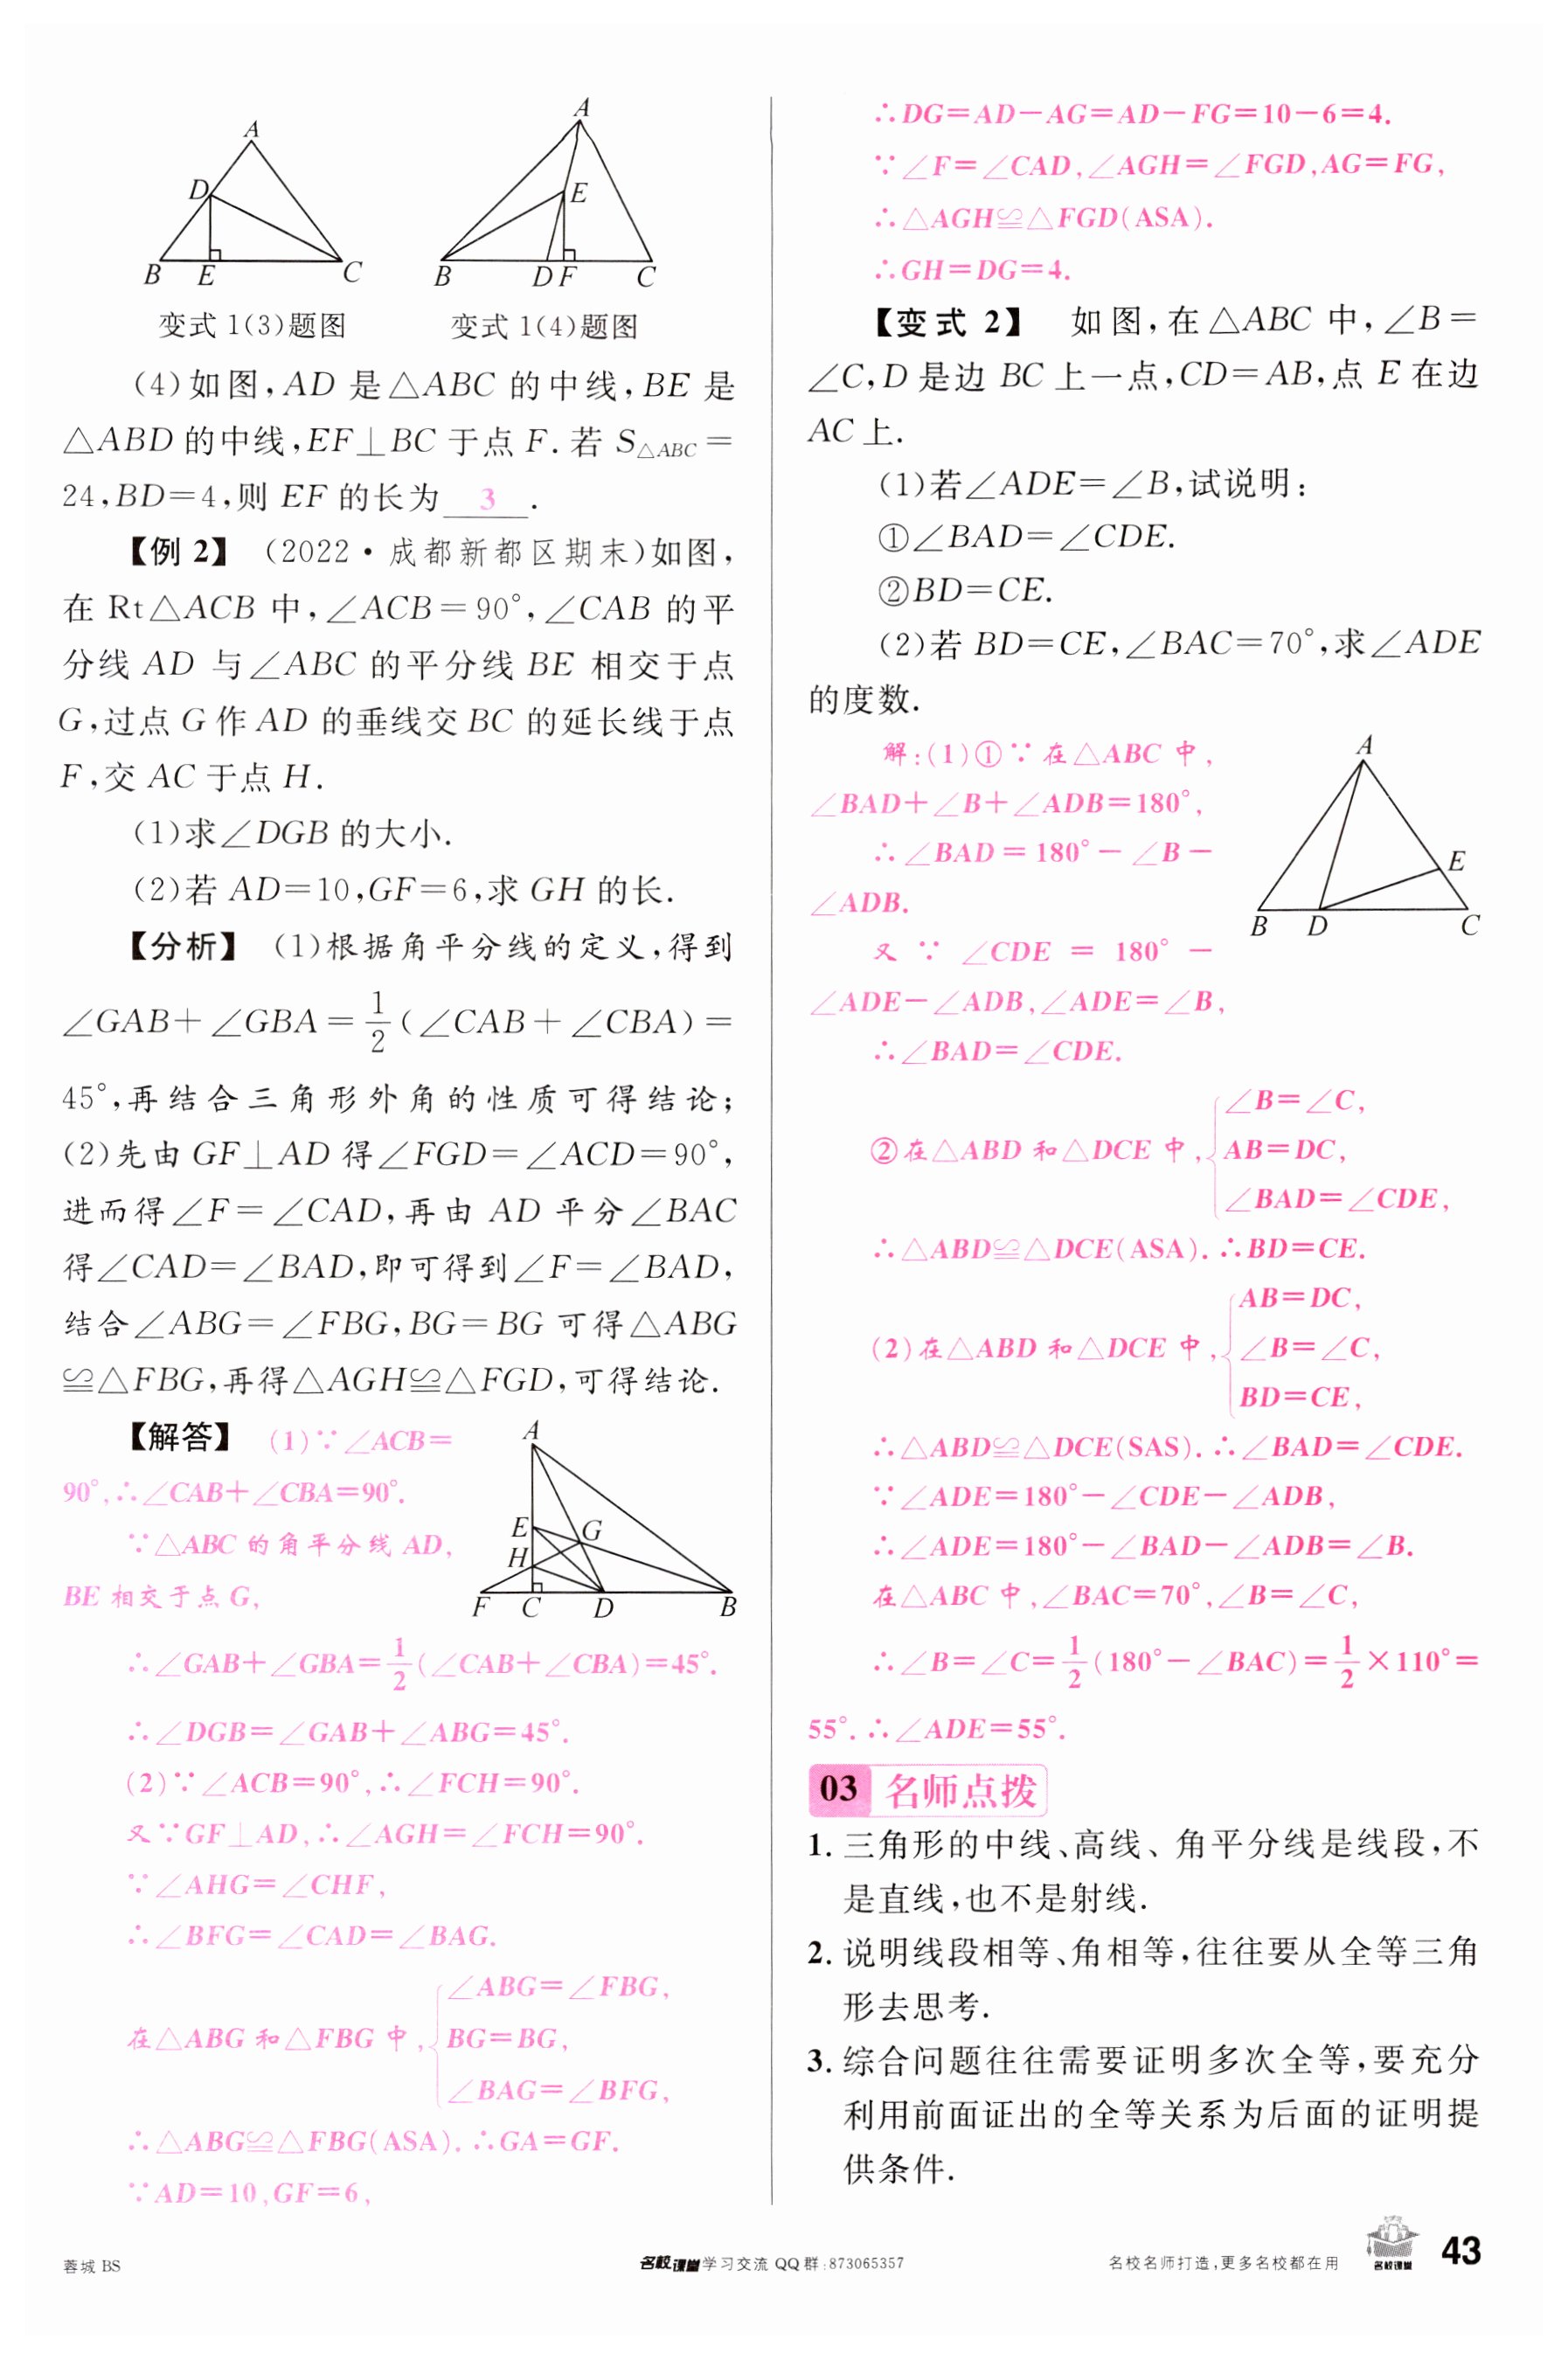 A
D
B E C
变式 1(3)题图
A
E
B D F C
变式 1(4)题图
(4)如图,AD 是△ABC 的中线,BE 是
△ABD 的中线,EF⊥BC 于点 F. 若 S△ABC=
24,BD=4,则 EF 的长为 3 .
【例 2】 (2022·成都新都区期末)如图,
在 Rt△ACB 中,∠ACB=90°,∠CAB 的平
分线 AD 与∠ABC 的平分线 BE 相交于点
G,过点 G 作 AD 的垂线交 BC 的延长线于点
F,交 AC 于点 H.
(1)求∠DGB 的大小.
(2)若 AD=10,GF=6,求 GH 的长.
【分析】 (1)根据角平分线的定义,得到
∠GAB+∠GBA=1/2(∠CAB+∠CBA)=
45°,再结合三角形外角的性质可得结论;
(2)先由 GF⊥AD 得∠FGD=∠ACD=90°,
进而得∠F=∠CAD,再由 AD 平分∠BAC
得∠CAD=∠BAD,即可得到∠F=∠BAD,
结合∠ABG=∠FBG,BG=BG 可得△ABG
≌△FBG,再得△AGH≌△FGD,可得结论.
【解答】 (1)∵∠ACB=
90°,∴∠CAB+∠CBA=90°.
∵△ABC 的角平分线 AD,
BE 相交于点 G,
A
E G
H
F C D B
∴∠GAB+∠GBA=1/2(∠CAB+∠CBA)=45°.
∴∠DGB=∠GAB+∠ABG=45°.
(2)∵∠ACB=90°,∴∠FCH=90°.
又∵GF⊥AD,∴∠AGH=∠FCH=90°.
∵∠AHG=∠CHF,
∴∠BFG=∠CAD=∠BAG.
∠ABG=∠FBG,
在△ABG 和△FBG 中,{BG=BG,
∠BAG=∠BFG,
∴△ABG≌△FBG(ASA). ∴GA=GF.
∵AD=10,GF=6,
∴DG=AD-AG=AD-FG=10-6=4.
∵∠F=∠CAD,∠AGH=∠FGD,AG=FG,
∴△AGH≌△FGD(ASA).
∴GH=DG=4.
【变式 2】 如图,在△ABC 中,∠B=
∠C,D 是边 BC 上一点,CD=AB,点 E 在边
AC 上.
(1)若∠ADE=∠B,试说明:
①∠BAD=∠CDE.
②BD=CE.
(2)若 BD=CE,∠BAC=70°,求∠ADE
的度数.
解:(1)①∵在△ABC 中,
∠BAD+∠B+∠ADB=180°,
∴∠BAD=180°-∠B-
∠ADB.
又∵∠CDE=180°-
∠ADE-∠ADB,∠ADE=∠B,
∴∠BAD=∠CDE.
A
E
B D C
∠B=∠C,
②在△ABD 和△DCE 中,{AB=DC,
∠BAD=∠CDE,
∴△ABD≌△DCE(ASA). ∴BD=CE.
AB=DC,
(2)在△ABD 和△DCE 中,{∠B=∠C,
BD=CE,
∴△ABD≌△DCE(SAS). ∴∠BAD=∠CDE.
∵∠ADE=180°-∠CDE-∠ADB,
∴∠ADE=180°-∠BAD-∠ADB=∠B.
在△ABC 中,∠BAC=70°,∠B=∠C,
∴∠B=∠C=1/2(180°-∠BAC)=1/2×110°=
55°. ∴∠ADE=55°.
03 名师点拨
1. 三角形的中线、高线、角平分线是线段,不
是直线,也不是射线.
2. 说明线段相等、角相等,往往要从全等三角
形去思考.
3. 综合问题往往需要证明多次全等,要充分
利用前面证出的全等关系为后面的证明提
供条件.
蓉城 BS
名校课堂学习交流 QQ 群:873065357
名校名师打造,更多名校都在用
名校课堂
43